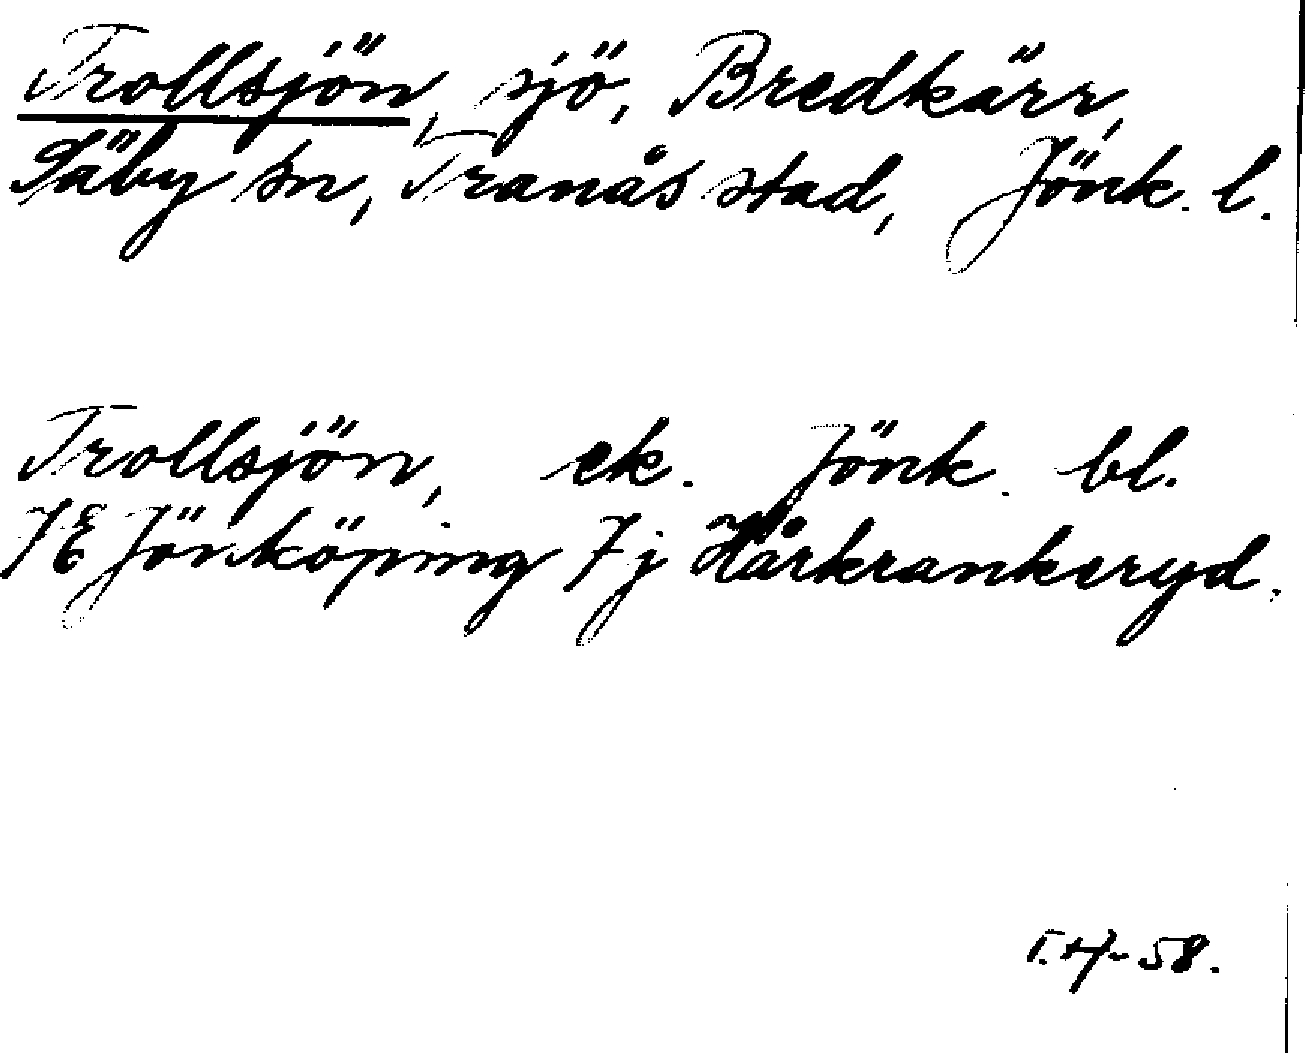 Trollsjön, sjö, Bredkärr,
Säby sn, Tranås stad, Jönk. l.
Trollsjön, ek. Jönk. bl.
7E Jönköping 7j Hårkrankeryd.
T.H-58.